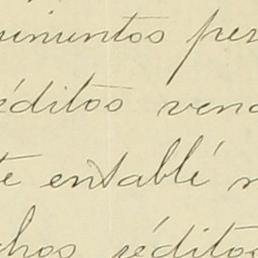 imientos per
réditos venc
te entablé r
chos réditos